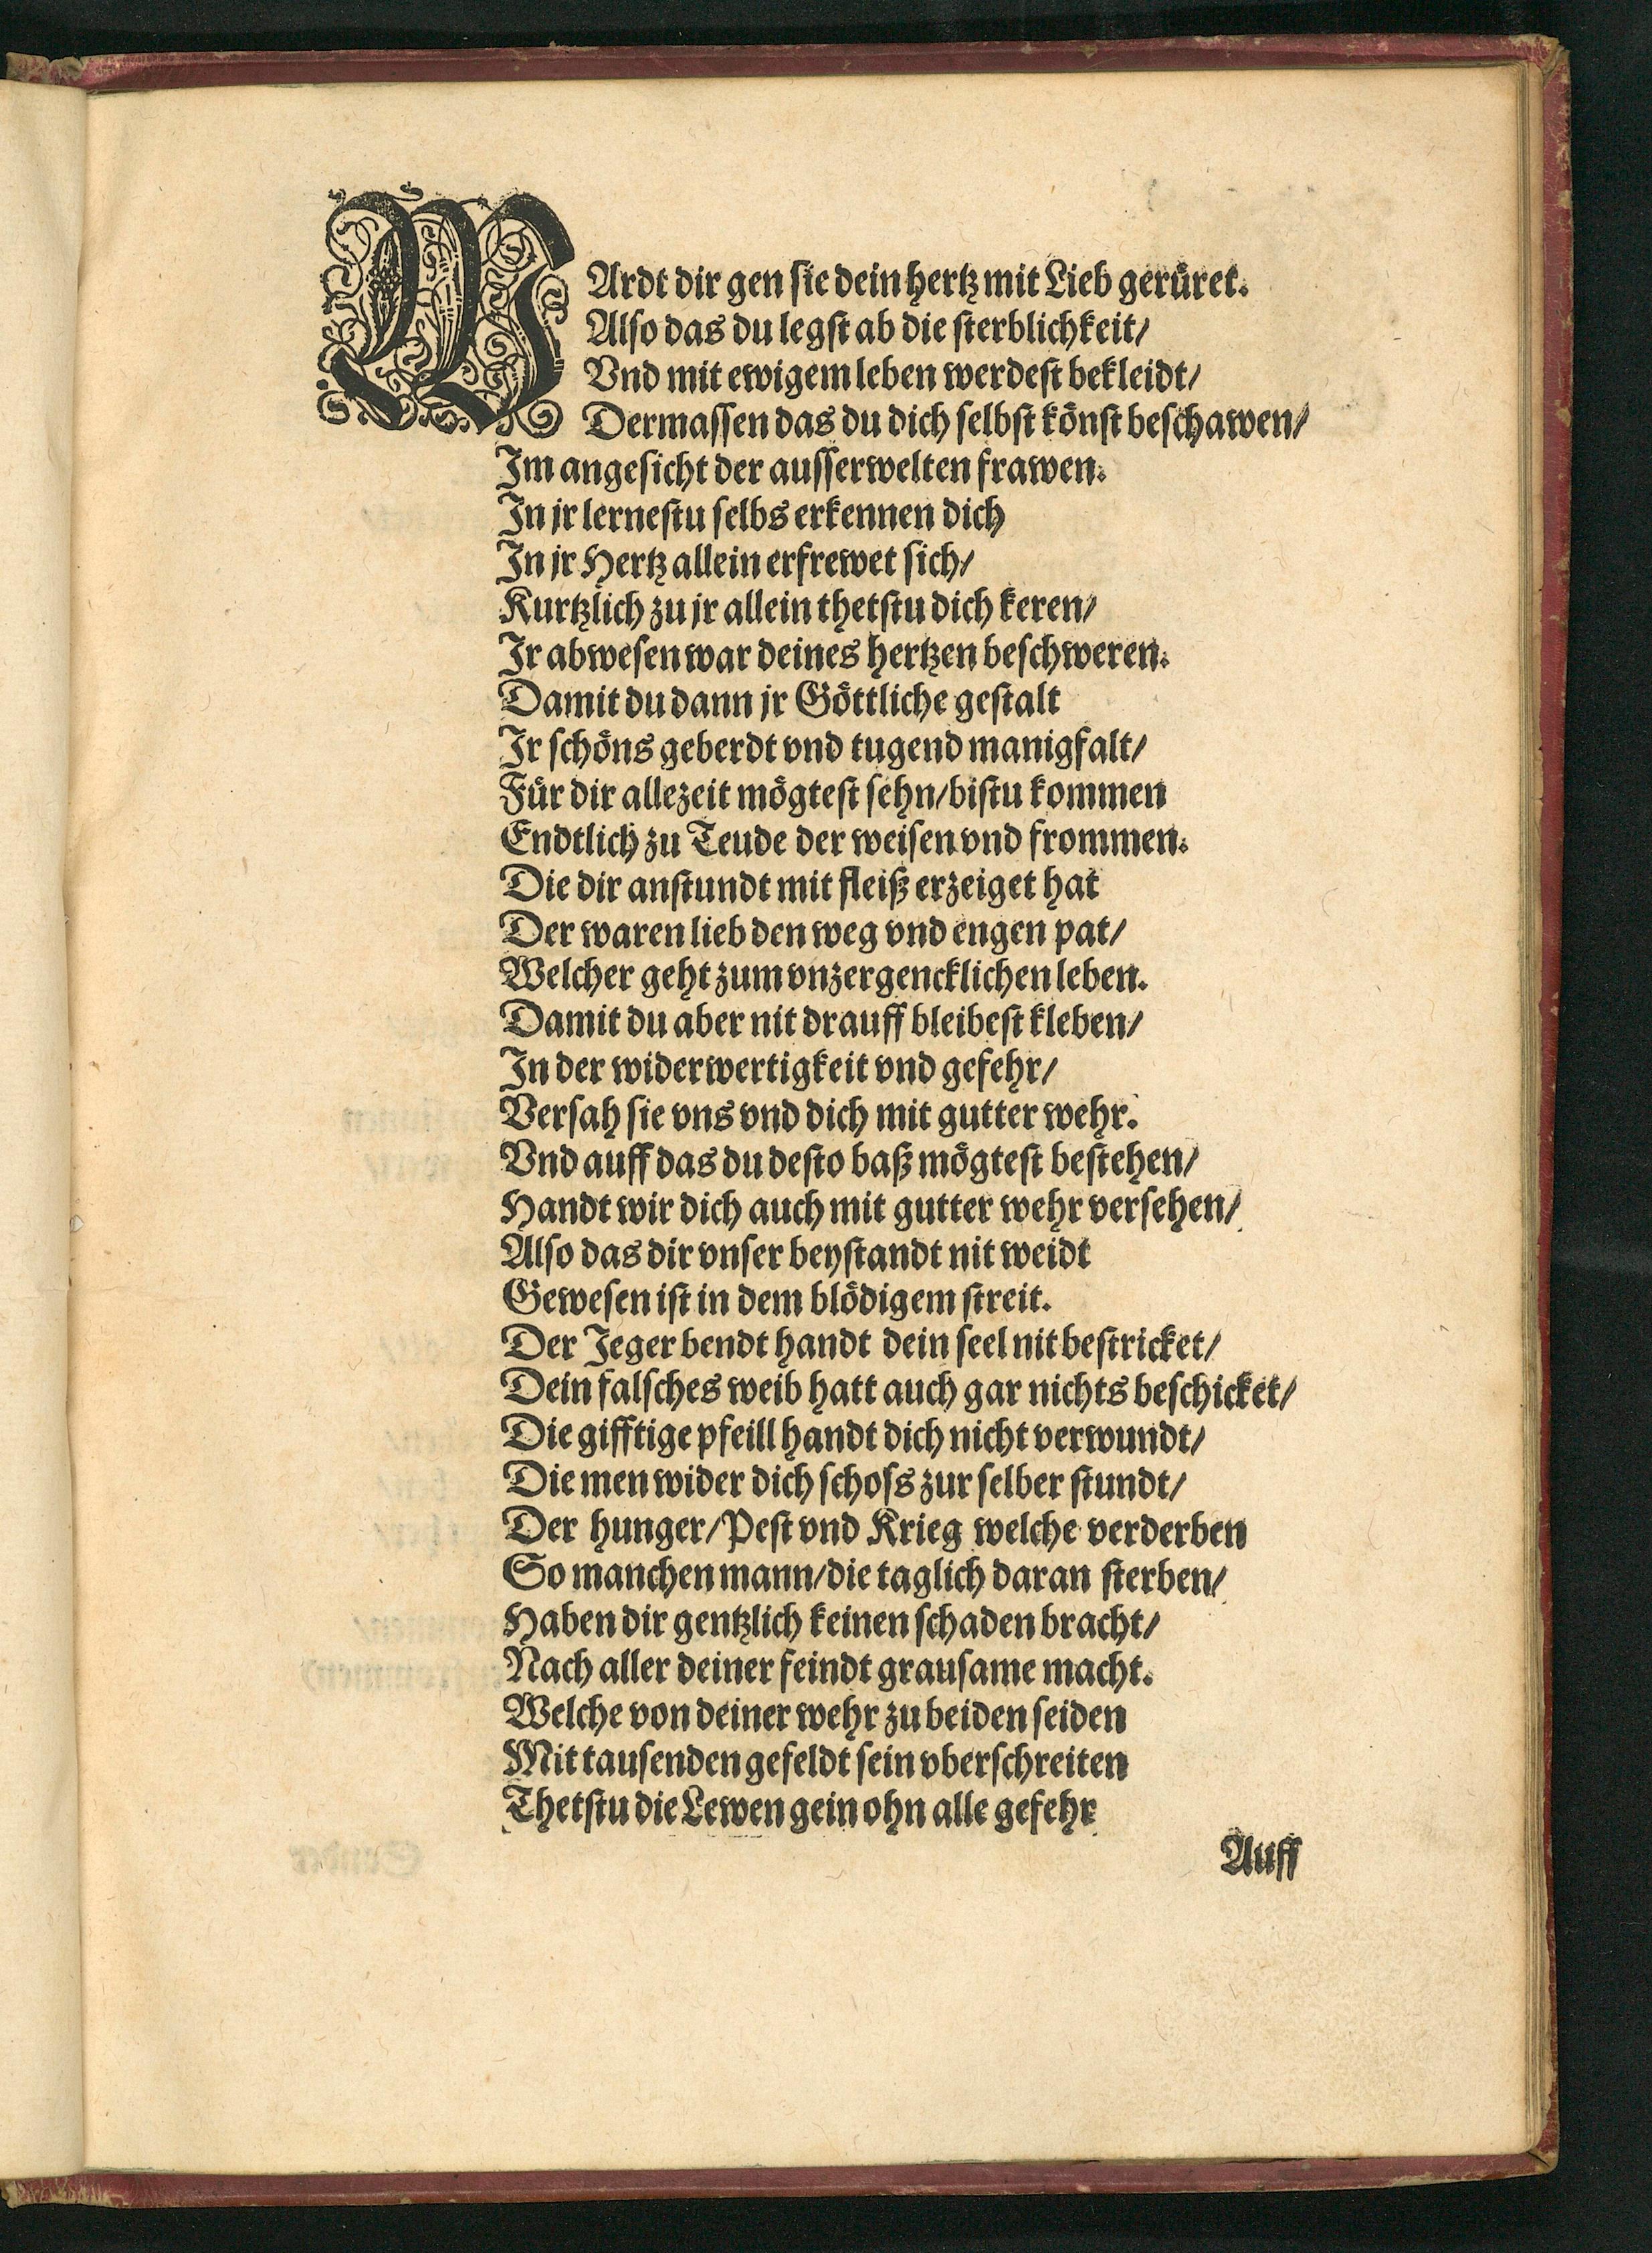 WArdt dir gen sie dein hertz mit Lieb gerüret.
Also das du legst ab die sterblichkeit/
Vnd mit ewigem leben werdest bekleidt/
Dermassen das du dich selbst könst beschawen/
Im angesicht der ausserwelten frawen.
In jr lernestu selbs erkennen dich
In jr Hertz allein erfrewet sich/
Kurtzlich zu jr allein thetstu dich keren/
Ir abwesen war deines hertzen beschweren.
Damit du dann jr Göttliche gestalt
Ir schöns geberdt vnd tugend manigfalt/
Für dir allezeit mögtest sehn/bistu kommen
Endtlich zu Teude der weisen vnd frommen.
Die dir anstundt mit fleiß erzeiget hat
Der waren lieb den weg vnd engen pat/
Welcher geht zum vnzergencklichen leben.
Damit du aber nit drauff bleibest kleben/
In der widerwertigkeit vnd gefehr/
Versah sie vns vnd dich mit gutter wehr.
Vnd auff das du desto baß mögtest bestehen/
Handt wir dich auch mit gutter wehr versehen/
Also das dir vnser beystandt nit weidt
Gewesen ist in dem blödigem streit.
Der Jeger bendt handt dein seel nit bestricket/
Dein falsches weib hatt auch gar nichts beschicket/
Die gifftige pfeill handt dich nicht verwundt/
Die men wider dich schoss zur selber stundt/
Der hunger/Pest vnd Krieg welche verderben
So manchen mann/die taglich daran sterben/
Haben dir gentzlich keinen schaden bracht/
Nach aller deiner feindt grausame macht.
Welche von deiner wehr zu beiden seiden
Mit tausenden gefeldt sein vberschreiten
Thetstu die Lewen gein ohn alle gefehr
Auff